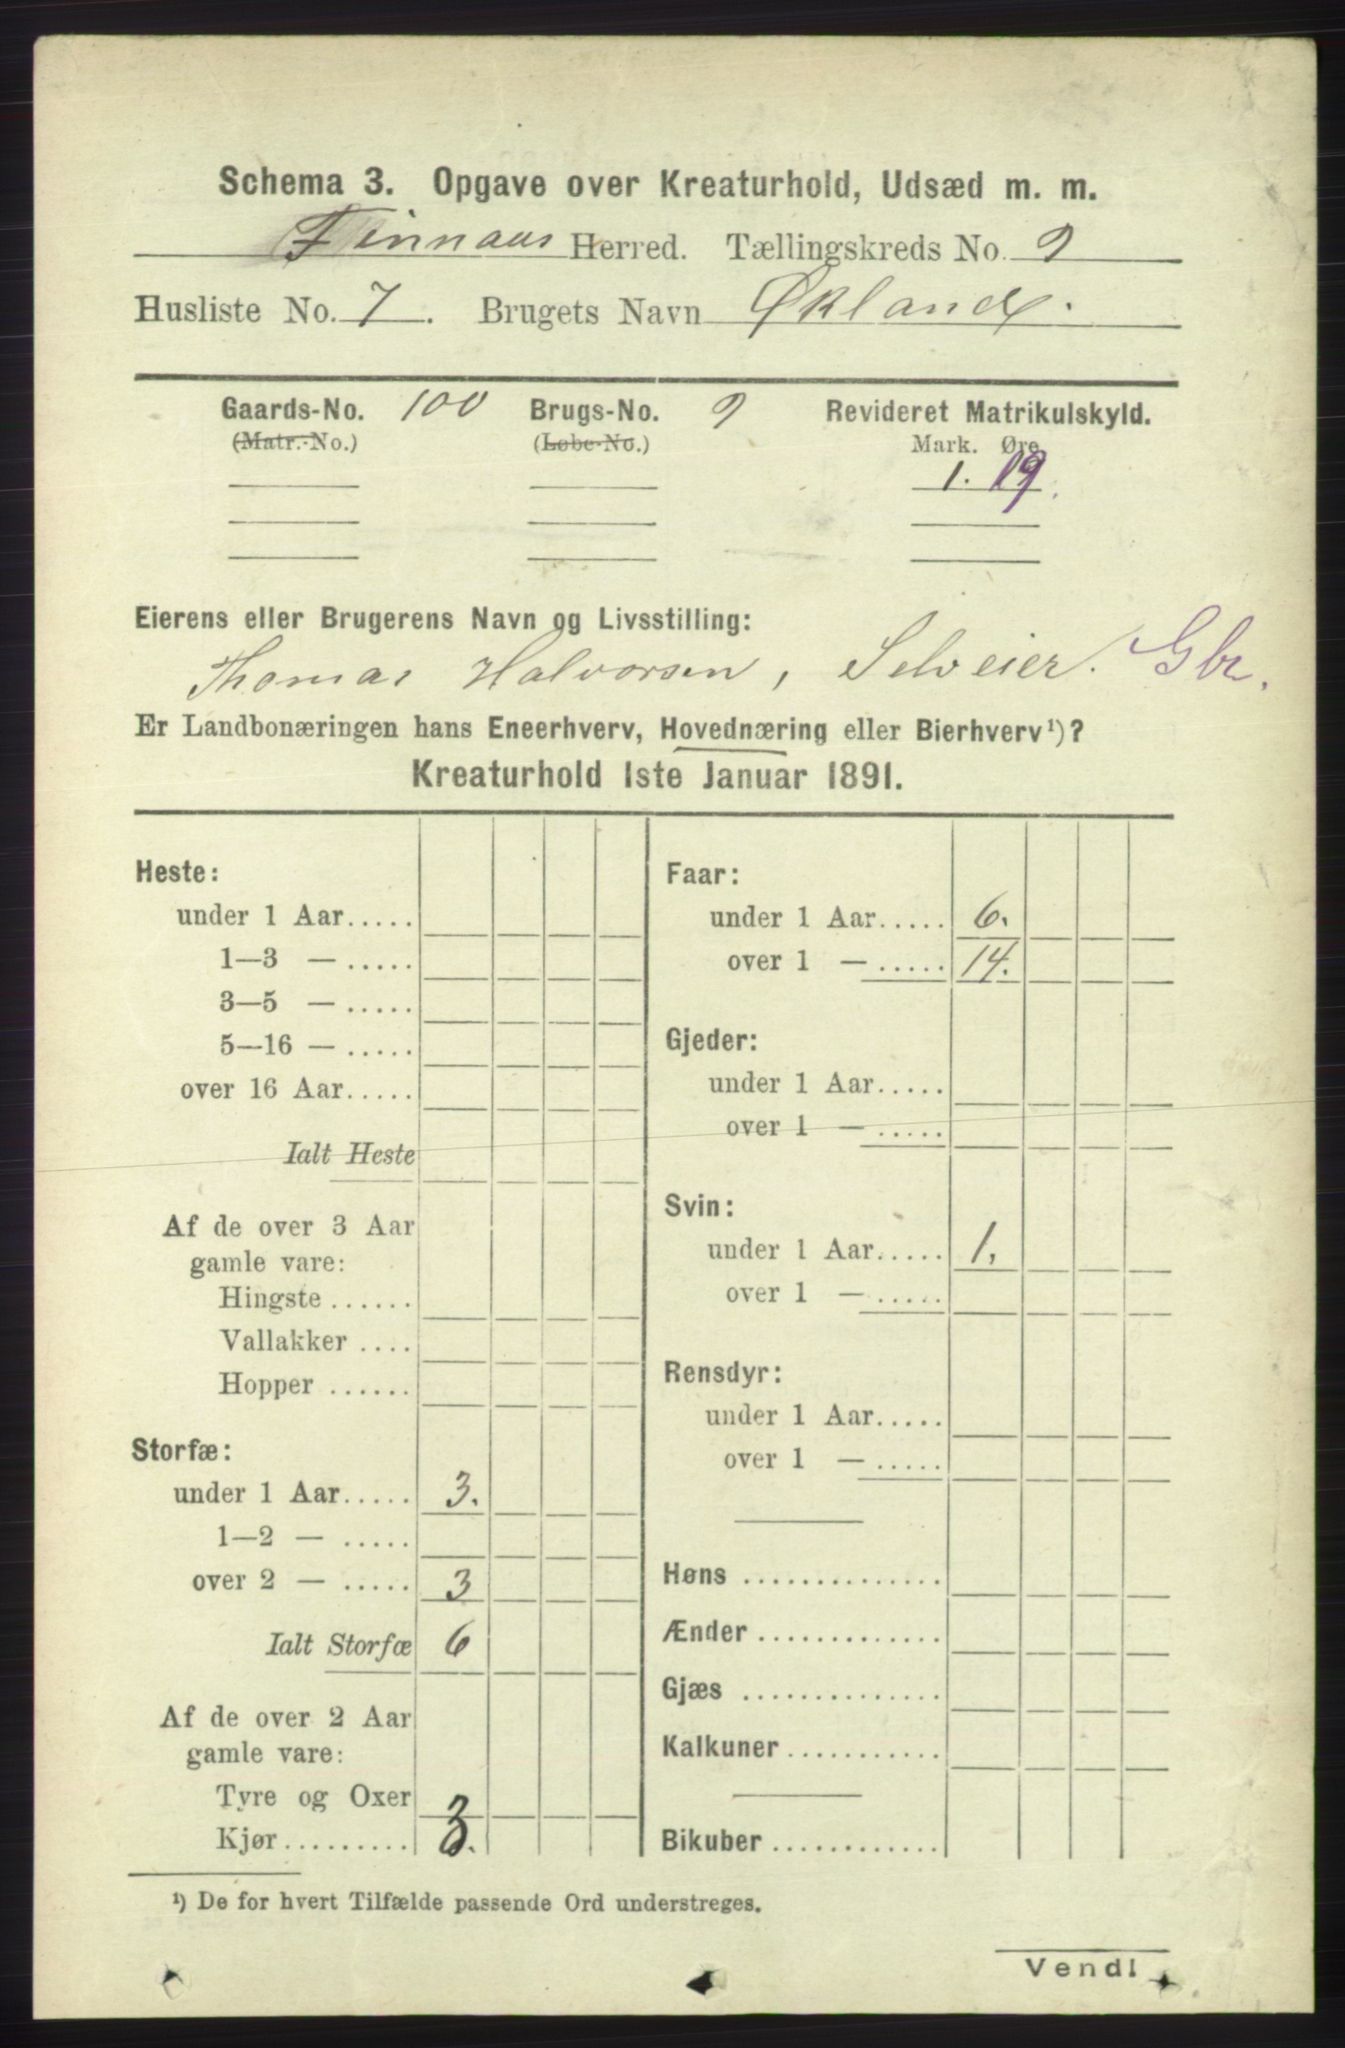 Schema 3. Opgave over Kreaturhold, Udsæd m. m.
Finnaas Herred. Tællingskreds No. 9
Husliste No. 7. Brugets Navn Økland.
Gaards-No. 100 Brugs-No. 9 Revideret Matrikulskyld.
(Matr.-No.) (Løbe-No.) Mark. Øre
1. 19.
Eierens eller Brugerens Navn og Livsstilling:
Thomas Halvorsen, Selveier. Gbr.
Er Landbonæringen hans Eneerhverv, Hovednæring eller Bierhverv¹)?
Kreaturhold 1ste Januar 1891.
Heste:
under 1 Aar.....
1—3 — .....
3—5 — .....
5—16 — .....
over 16 Aar.....
Ialt Heste
Af de over 3 Aar
gamle vare:
Hingste ......
Vallakker ....
Hopper ......
Storfæ:
under 1 Aar..... 3.
1—2 — .....
over 2 — ..... 3
Ialt Storfæ 6
Af de over 2 Aar
gamle vare:
Tyre og Oxer
Kjør......... 3.
Faar:
under 1 Aar..... 6.
over 1 — ..... 14.
Gjeder:
under 1 Aar.....
over 1 — .....
Svin:
under 1 Aar..... 1.
over 1 — .....
Rensdyr:
under 1 Aar.....
over 1 — .....
Høns ..............
Ænder .............
Gjæs ..............
Kalkuner...........
Bikuber ............
¹) De for hvert Tilfælde passende Ord understreges.
Vend!